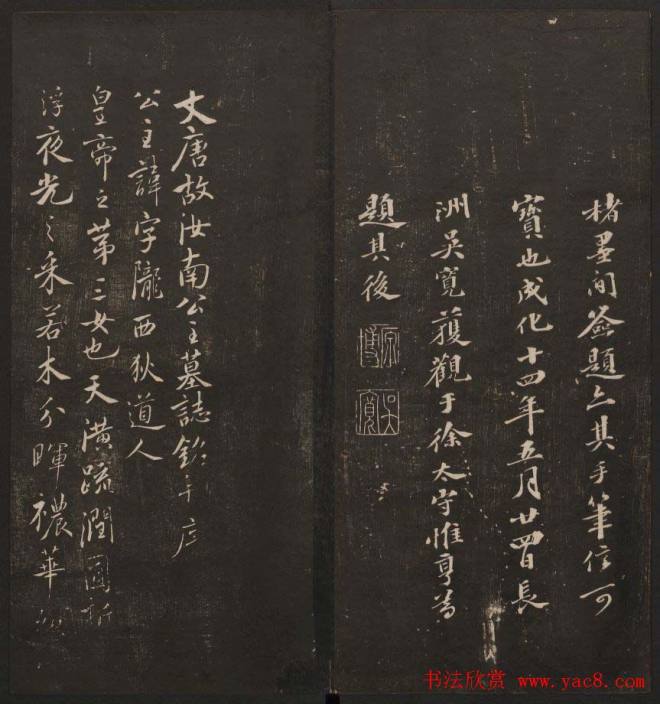 楮墨间签题亦其手笔信可
寶也成化十四年五月廿四日長
洲吴寛获觀于徐太守惟亨為
題其後
原博
吴寛
大唐故汝南公主墓誌銘并序
公主諱字隴西狄道人
皇帝之第三女也天潢疏潤圓折
浮夜光之采若木分暉穠華
书法欣赏 www.yac8.com